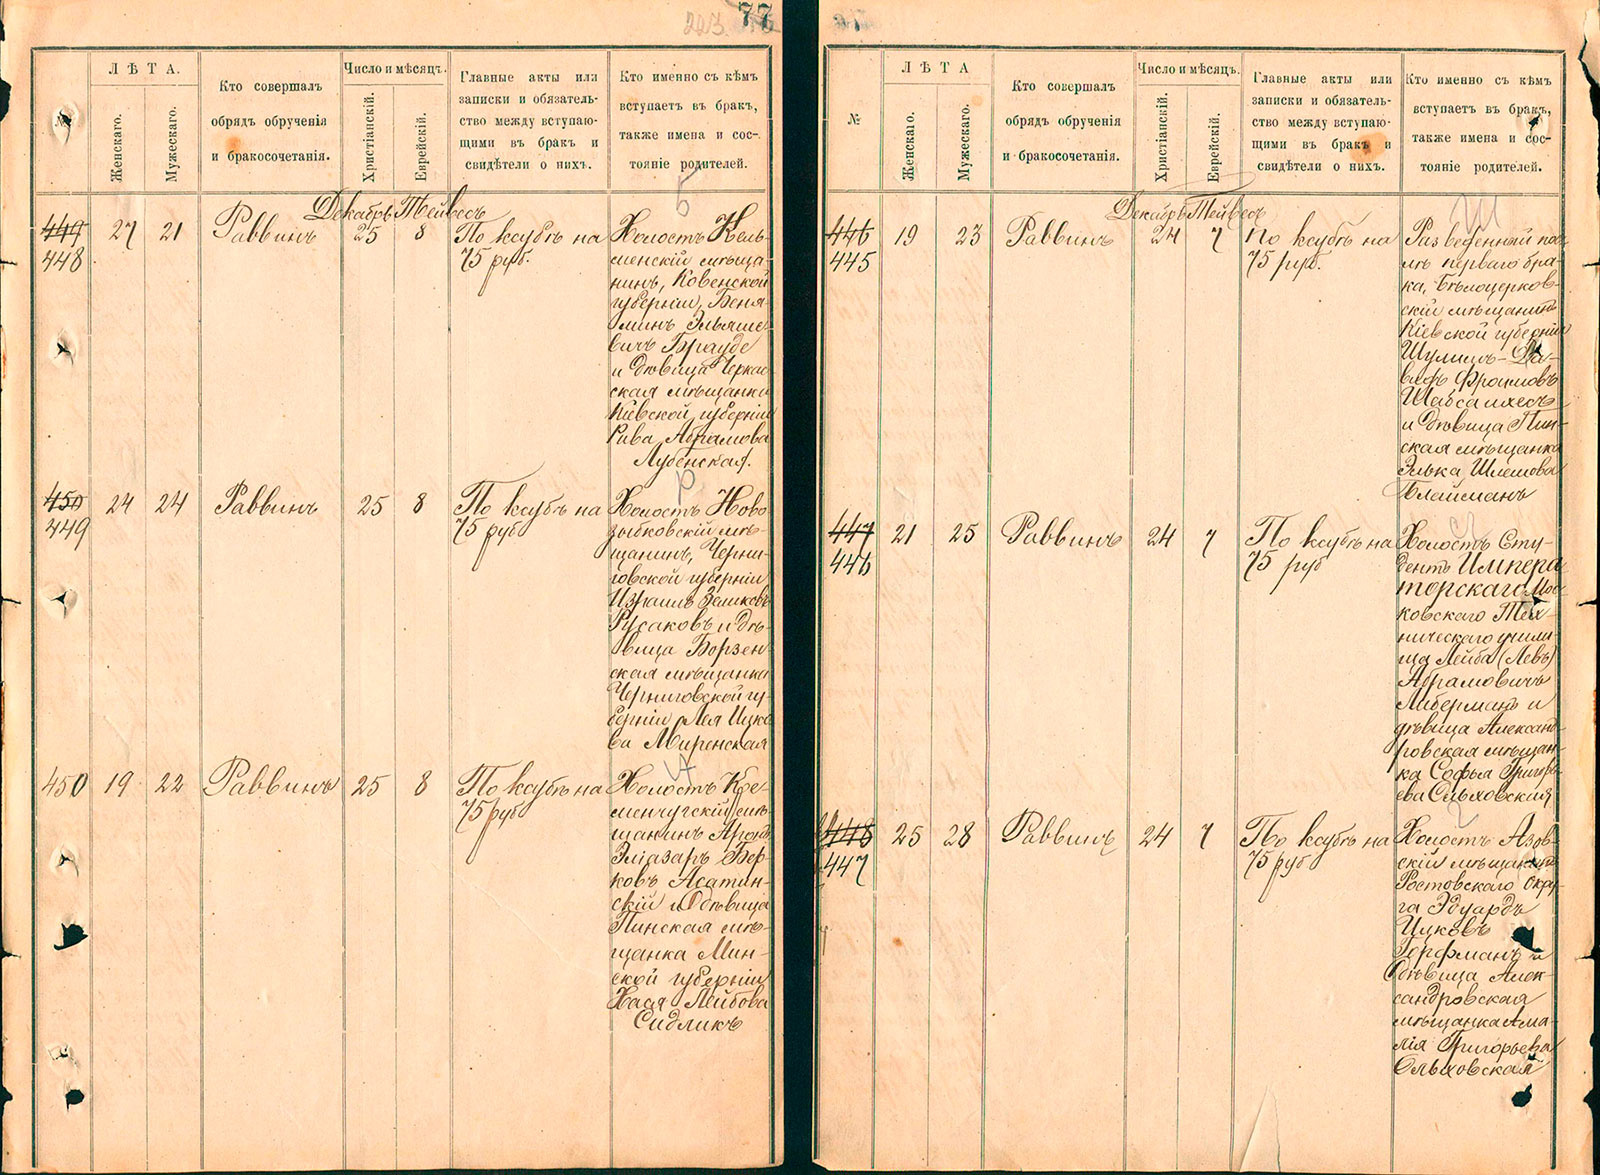 223
77
№
ЛѢТА.
Женскаго.
Мужескаго.
Кто совершалъ
обрядъ обрученія
и бракосочетанія.
Число и мѣсяцъ.
Христіанскій.
Еврейскій.
Главные акты или
записки и обязатель-
ство между вступаю-
щими въ бракъ и
свидѣтели о нихъ.
Кто именно съ кѣмъ
вступаетъ въ бракъ,
также имена и сос-
тояніе родителей.
Б
Декабрь Тейвесъ
449
448
27
21
Раввинъ
25
8
По ксубѣ на
75 руб.
Холостъ Кель-
менскій мѣща-
нинъ, Ковенской
губерніи, Беня-
минъ Эльяше-
вичъ Брауде
и дѣвица Черкас-
ская мѣщанка
Кіевской губерніи
Рива Абрамова
Лубенская.
Р
450
449
24
24
Раввинъ
25
8
По ксубѣ на
75 руб
Холостъ Ново-
зыбковскій мѣ-
щанинъ, Черни-
говской губерніи
Израиль Зеликовъ
Русаковъ и дѣ-
вица Борзен-
ская мѣщанка
Черниговской гу-
берніи Лея Ицко-
ва Миренская
450
19
22
Раввинъ
25
8
По ксубѣ на
75 руб
Холостъ Кре-
менчугскій мѣ-
щанинъ Аронъ
Эліазаръ Бер-
ковъ Асатин-
скій и дѣвица
Пинская мѣ-
щанка Мин-
ской губерніи
Хася Лейбова
Сидликъ
№
ЛѢТА
Женскаго.
Мужескаго.
Кто совершалъ
обрядъ обрученія
и бракосочетанія.
Число и мѣсяцъ.
Христіанскій.
Еврейскій.
Главные акты или
записки и обязатель-
ство между вступаю-
щими въ бракъ и
свидѣтели о нихъ.
Кто именно съ кѣмъ
вступаетъ въ бракъ,
также имена и сос-
тояніе родителей.
Ш
Декабрь Тейвесъ
446
445
19
23
Раввинъ
24
7
По ксубѣ на
75 руб.
Разведенный пос-
лѣ перваго бра-
ка, Бѣлоцерков-
скій мѣщанинъ
Кіевской губерніи
Шулимъ-Да-
видъ Фроимовъ
Шабсалхесъ
и дѣвица Пин-
ская мѣщанка
Элька Шлемова
Глайсманъ
447
446
21
25
Раввинъ
24
7
По ксубѣ на
75 руб
Холостъ Сту-
дентъ Импера-
торскаго Мос-
ковскаго Тех-
ническаго учили-
ща Лейба (Левъ)
Абрамовичъ
Либерманъ и
дѣвица Александ-
ровская мѣщан-
ка Софья Григорь-
ева Ольховская
448
447
25
28
Раввинъ
24
7
По ксубѣ на
75 руб
Холостъ Азов-
скій мѣщанинъ
Ростовскаго окру-
га Эдуардъ
Ицковъ
Гофманъ и
дѣвица Алек-
сандровская
мѣщанка Ама-
лія Григорьева
Ольховская